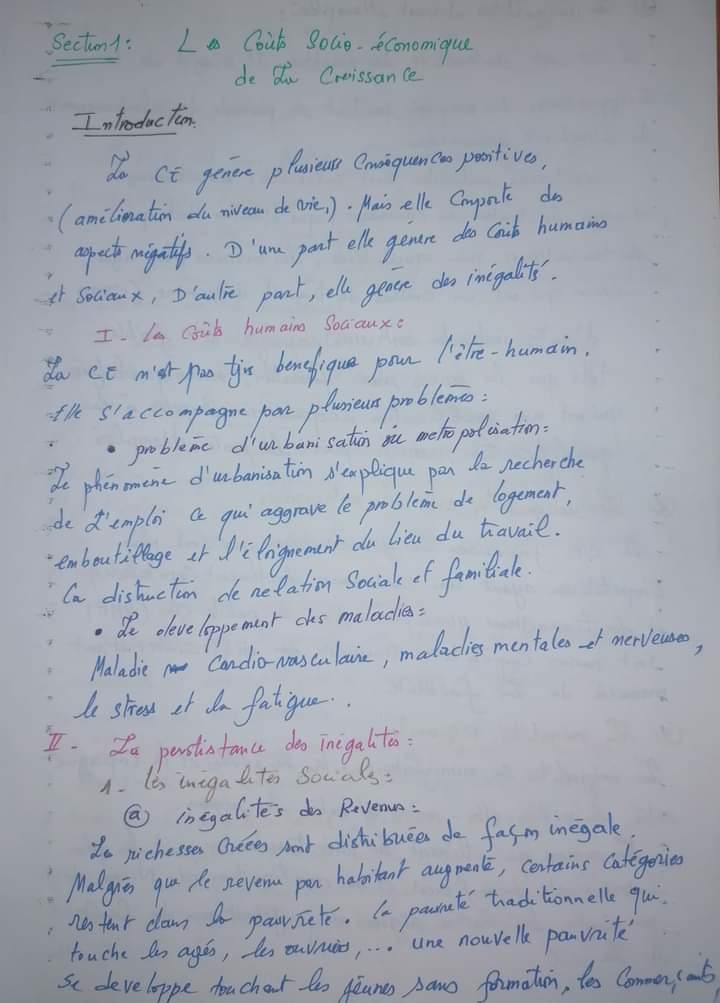 Section 1: Les Coûts Socio-économique
de La Croissance
Introduction
La CE génère plusieurs Conséquences positives,
(amélioration du niveau de vie,). Mais elle Comporte des
aspects négatifs. D'une part elle génère des Coûts humains
et Sociaux, D'autre part, elle génère des inégalité.
I- Les Coûts humains Sociaux:
La CE n'est pas tjrs benefique pour l'être-humain.
Elle s'accompagne par plusieurs problèmes:
• problème d'urbanisation ou metropolisation:
Le phénomène d'urbanisation s'explique par la recherche
de L'emploi ce qui aggrave le problème de logement,
emboutillage et l'éloignement du Lieu du travail.
La distruction de relation Sociale et familiale.
• Le developpement des maladies:
Maladie Cardio-vasculaire, maladies mentales et nerveuses,
le stress et la fatigue..
II- La perstistance des inégalités:
1- les inégalités Sociales:
(a) inégalités des Revenus:
Le richesses Créées sont distribuées de façon inégale.
Malgrés que le revenu par habitant augmenté, certains Catégories
restent dans la pauvreté. la pauvreté traditionnelle qui
touche les agés, les ouvriés,... une nouvelle pauvrité
se developpe touchant les jeunes sans formation, les Commerçants,